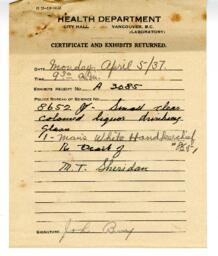 HEALTH DEPARTMENT
CITY HALL - VANCOUVER, B.C.
(LABORATORY)
CERTIFICATE AND EXHIBITS RETURNED.
DATE Monday, April 5/37.
TIME 9 30 A.M.
EXHIBITS RECEIPT NO. A 3085
POLICE BUREAU OF SCIENCE NO.
8652 Small clear
colored liquor drinking
Glass
1 - Man's White Handkerchief
# 8651
Re Death of
M.T. Sheridan
SIGNATURE John